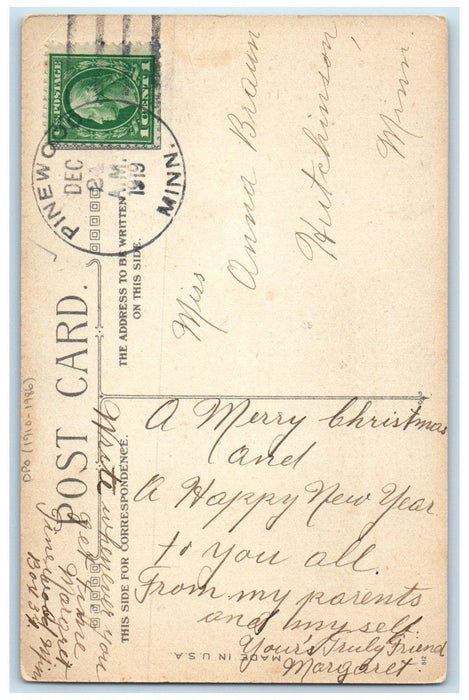 U.S. POSTAGE
1 CENT 1
PINEWOOD
MINN.
DEC
A.M.
1919
POST CARD.
THE ADDRESS TO BE WRITTEN
ON THIS SIDE.
THIS SIDE FOR CORRESPONDENCE.
DPO (1910-1986)
Miss
Anna Braun
Hutchinson
Minn.
A Merry Christmas
and
A Happy New Year
to you all.
From my parents
and my self
Your's Truly Friend
Margaret.
Write whenever you
get time
Margret
Pinewood, Minn
Box 34
MADE IN U.S.A.
812